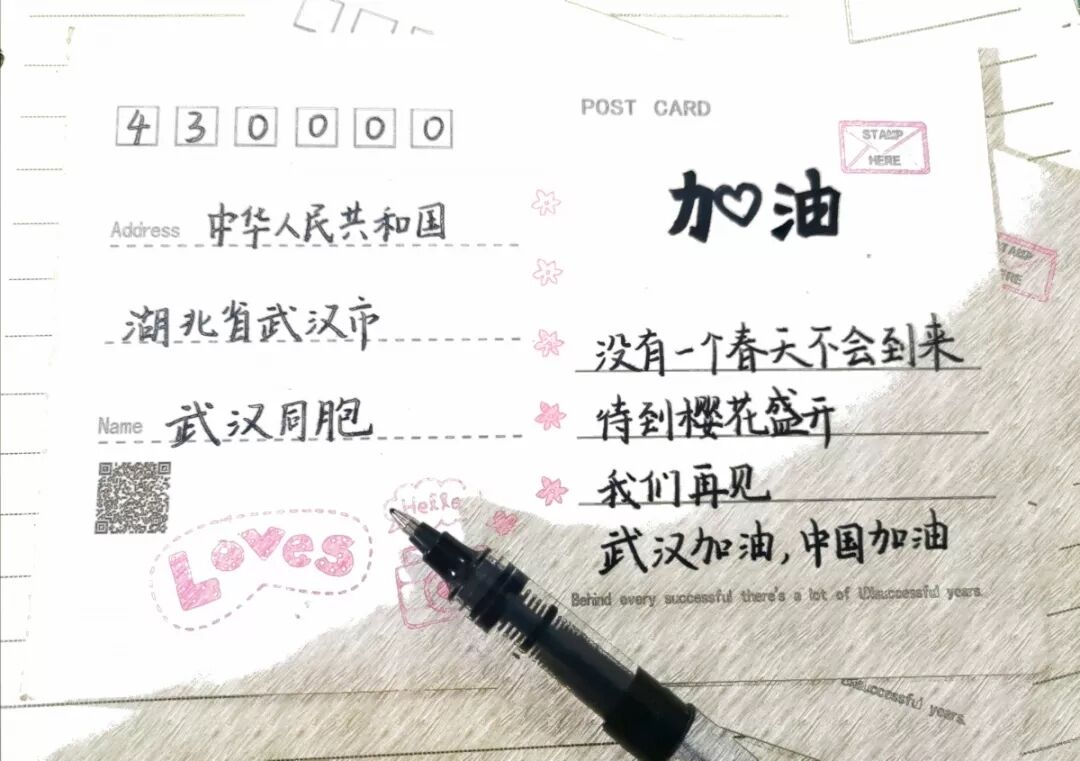 430000
POST CARD
STAMP
HERE
加油
Address 中华人民共和国
湖北省武汉市
Name 武汉同胞
没有一个春天不会到来
待到樱花盛开
我们再见
武汉加油,中国加油
Loves
Behind every successful there's a lot of unsuccessful years.
STAMP
HERE
unsuccessful years.